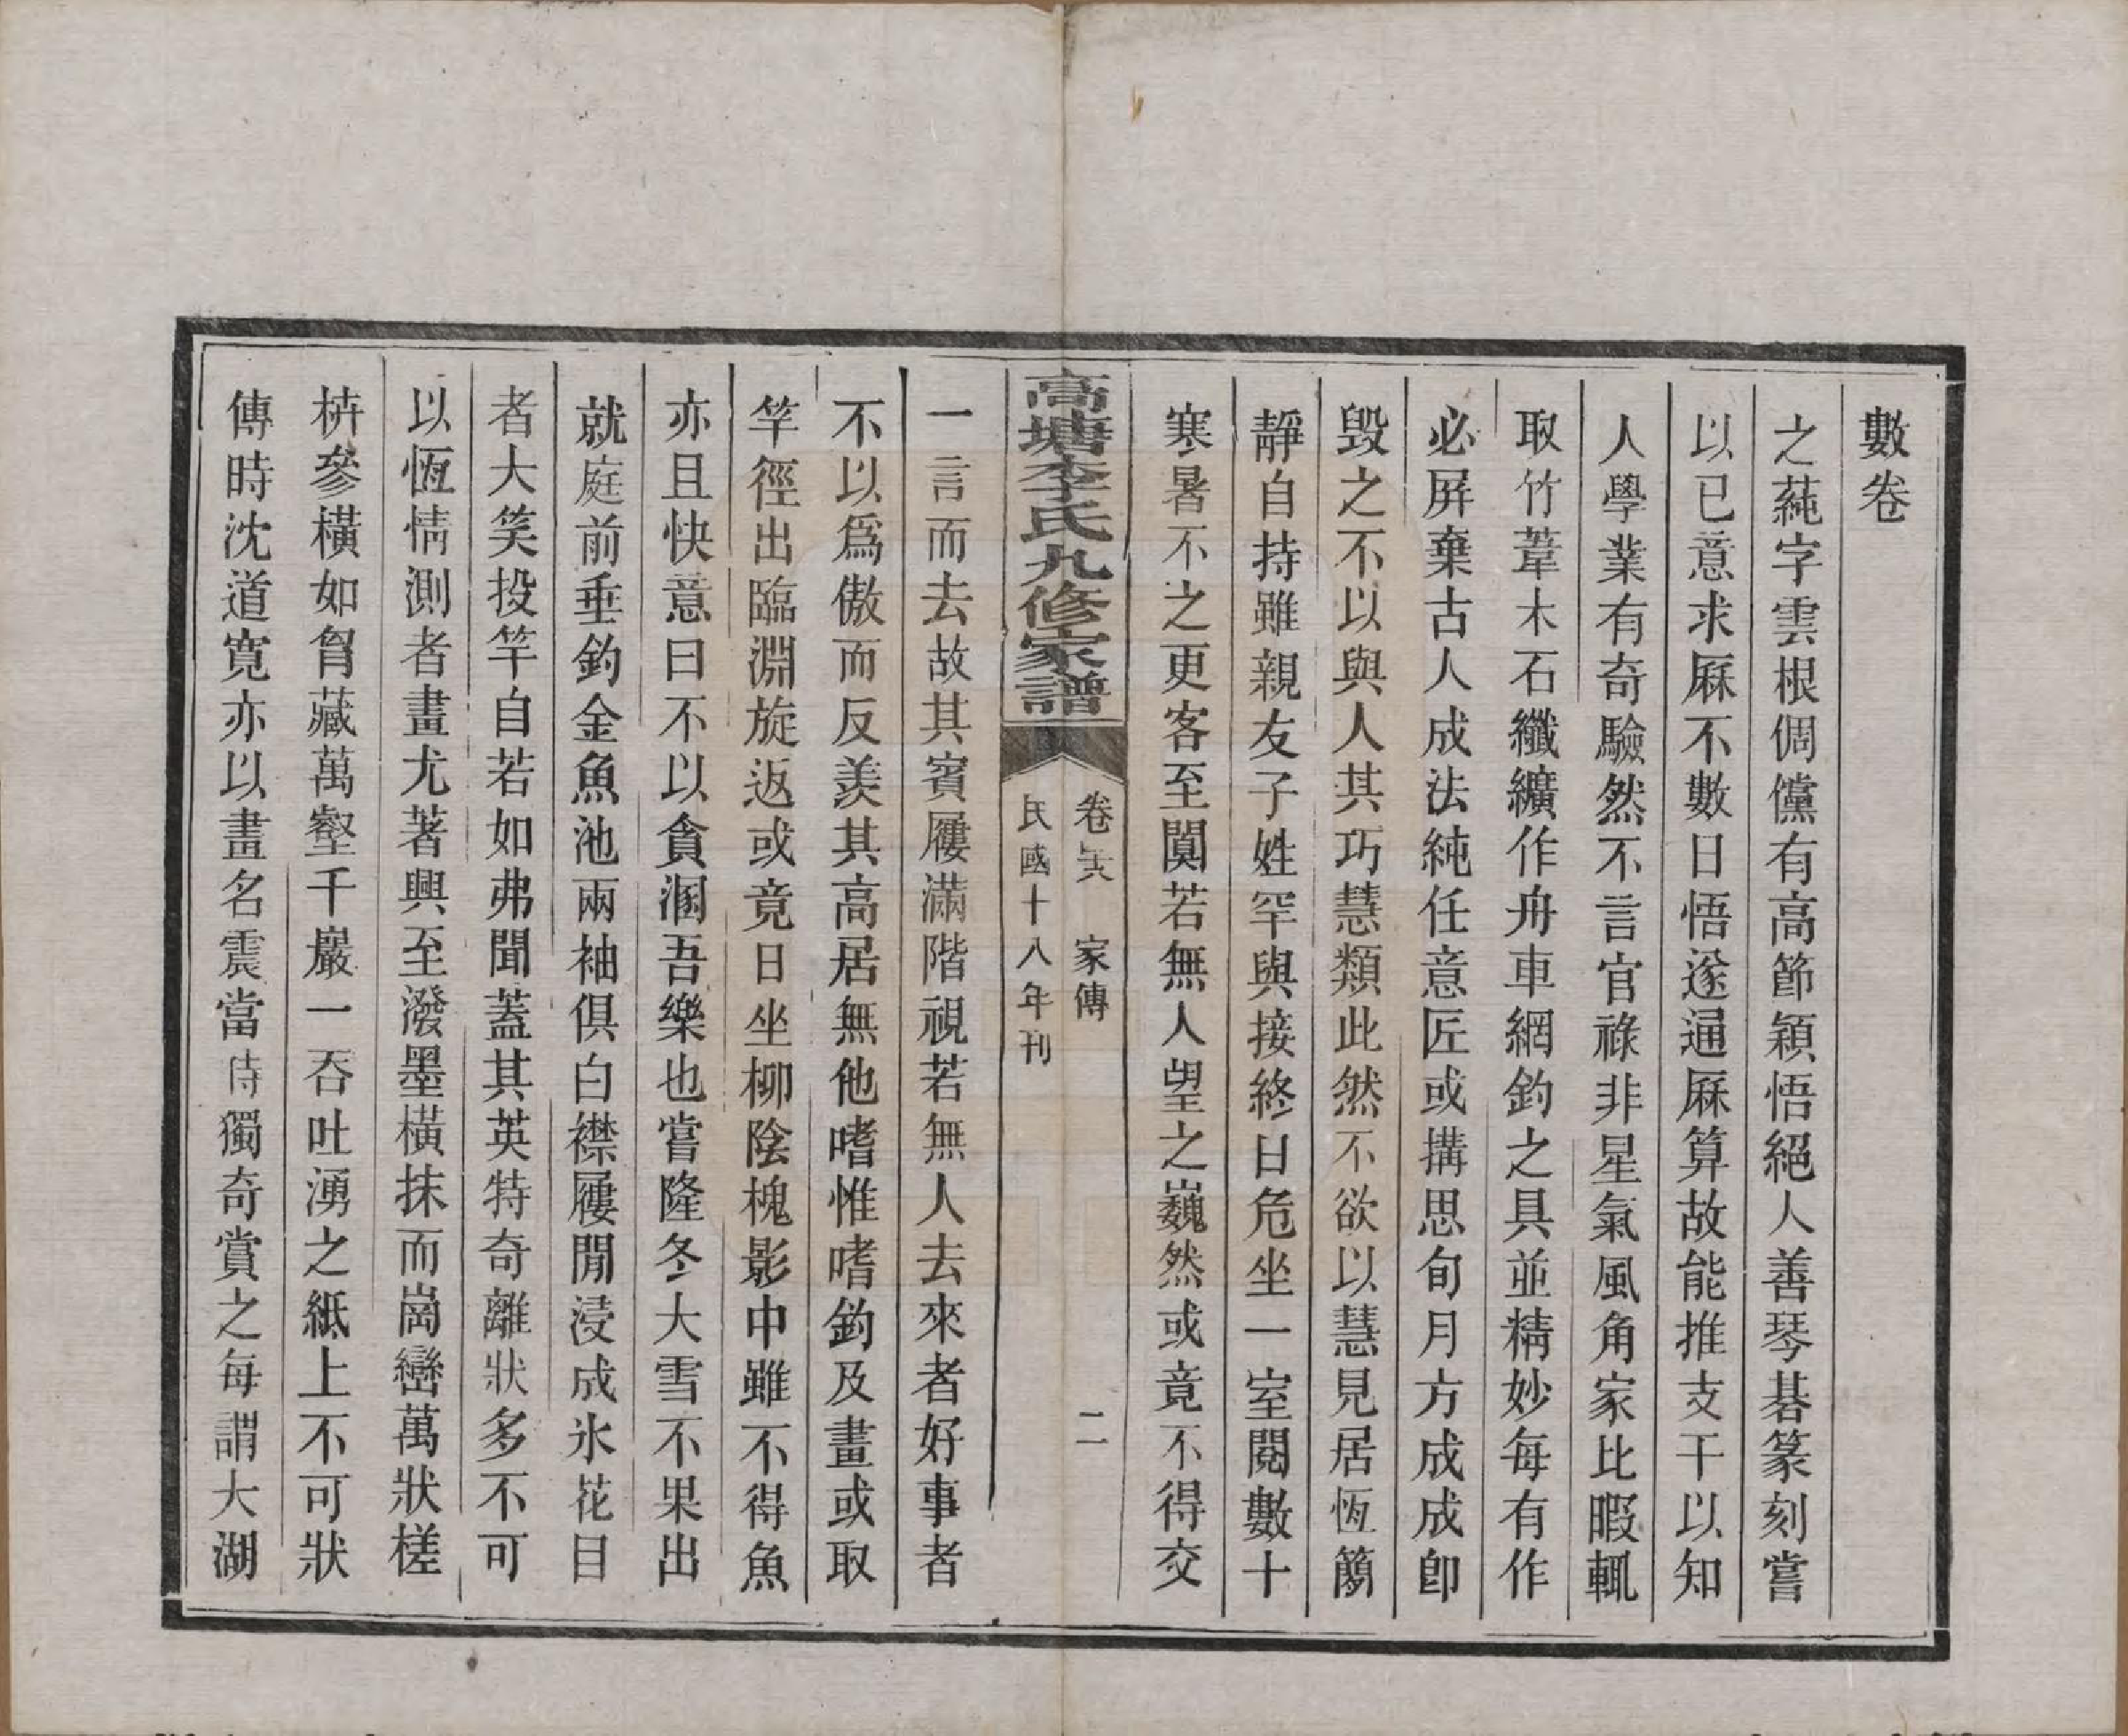 數卷
之蒓字雲根倜儻有高節穎悟絕人善琴碁篆刻嘗
以已意求厤不數日悟遂通厤算故能推支干以知
人學業有奇驗然不言官祿非星氣風角家比暇輒
取竹葦木石纖纊作舟車網釣之具並精妙每有作
必屏棄古人成法純任意匠或搆思旬月方成成卽
毁之不以與人其巧慧類此然不欲以慧見居恆簡
靜自持雖親友子姓罕與接終日危坐一室閱數十
寒暑不之更客至闃若無人望之巍然或竟不得交
高塘李氏九修家譜
卷 家傳
二
民國十八年刊
一言而去故其賓屨滿階視若無人去來者好事者
不以爲傲而反羨其高居無他嗜惟嗜釣及畫或取
竿徑出臨淵旋返或竟日坐柳陰槐影中雖不得魚
亦且快意曰不以貪溷吾樂也嘗隆冬大雪不果出
就庭前垂釣金魚池兩袖俱白襟屨閒浸成氷花目
者大笑投竿自若如弗聞蓋其英特奇離狀多不可
以恆情測者畫尤著興至潑墨橫抹而崗巒萬狀槎
枿參橫如胷藏萬壑千巖一吞吐湧之紙上不可狀
傳時沈道寬亦以畫名震當時獨奇賞之每謂大湖